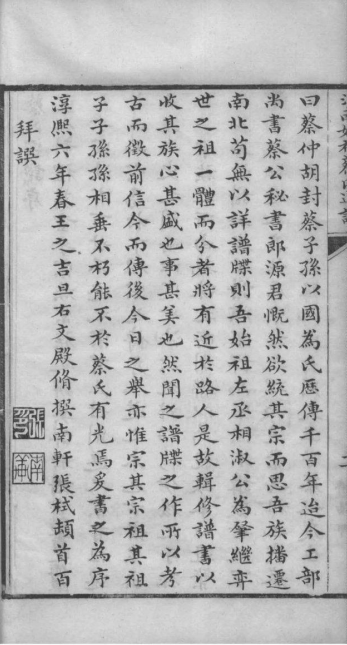 曰蔡仲胡封蔡子孫以國為氏歷傳千百年迨今工部
尚書蔡公秘書郎源君慨然欲統其宗而思吾族播遷
南北苟無以詳譜牒則吾始祖左丞相淑公為肇繼弈
世之祖一體而分者將有近於路人是故輯修譜書以
收其族心甚盛也事甚美也然聞之譜牒之作所以考
古而徵前信今而傳後今日之舉亦惟宗其宗祖其祖
子子孫孫相垂不朽能不於蔡氏有光焉爰書之為序
淳熙六年春王之吉旦右文殿脩撰南軒張栻頓首百
拜譔
南軒